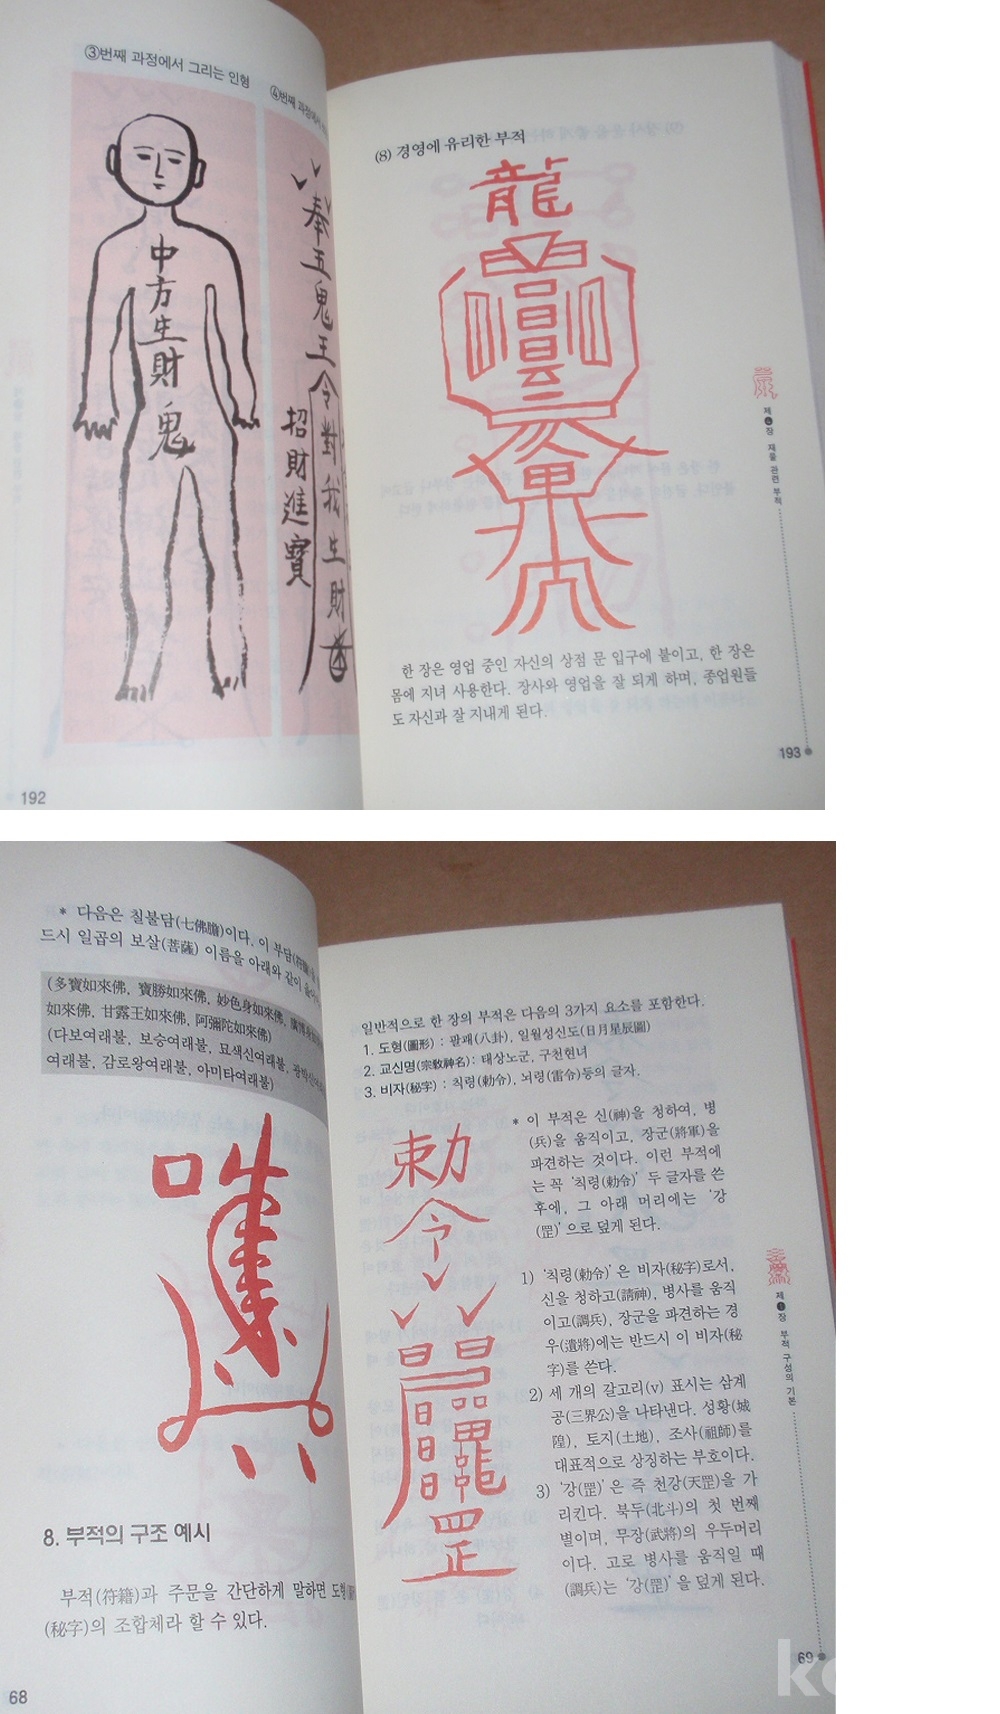 ③번째 과정에서 그리는 인형
④번째 과정에서
中方生財鬼
奉五鬼王令對我生財
招財進寶
192
(8) 경영에 유리한 부적
龍
한 장은 영업 중인 자신의 상점 문 입구에 붙이고, 한 장은
몸에 지녀 사용한다. 장사와 영업을 잘 되게 하며, 종업원들
도 자신과 잘 지내게 된다.
제4장 재물 관련 부적
193
* 다음은 칠불담(七佛膽)이다. 이 부담(符膽)
드시 일곱의 보살(菩薩) 이름을 아래와 같이
(多寶如來佛, 寶勝如來佛, 妙色身如來佛, 廣博身
如來佛, 甘露王如來佛, 阿彌陀如來佛)
(다보여래불, 보승여래불, 묘색신여래불, 광박신
여래불, 감로왕여래불, 아미타여래불)
8. 부적의 구조 예시
부적(符籍)과 주문을 간단하게 말하면 도형
(秘字)의 조합체라 할 수 있다.
68
일반적으로 한 장의 부적은 다음의 3가지 요소를 포함한다.
1. 도형(圖形) : 팔괘(八卦), 일월성신도(日月星辰圖)
2. 교신명(宗敎神名) : 태상노군, 구천현녀
3. 비자(秘字) : 칙령(勅令), 뇌령(雷令)등의 글자.
勅
令
罡
* 이 부적은 신(神)을 청하여, 병
(兵)을 움직이고, 장군(將軍)을
파견하는 것이다. 이런 부적에
는 꼭 '칙령(勅令)' 두 글자를 쓴
후에, 그 아래 머리에는 '강
(罡)'으로 덮게 된다.
1) '칙령(勅令)'은 비자(秘字)로서,
신을 청하고(請神), 병사를 움직
이고(調兵), 장군을 파견하는 경
우(遣將)에는 반드시 이 비자(秘
字)를 쓴다.
2) 세 개의 갈고리(v) 표시는 삼계
공(三界公)을 나타낸다. 성황(城
隍), 토지(土地), 조사(祖師)를
대표적으로 상징하는 부호이다.
3) '강(罡)'은 즉 천강(天罡)을 가
리킨다. 북두(北斗)의 첫 번째
별이며, 무장(武將)의 우두머리
이다. 고로 병사를 움직일 때
(調兵)는 '강(罡)'을 덮게 된다.
제1장 부적 구성의 기본
69